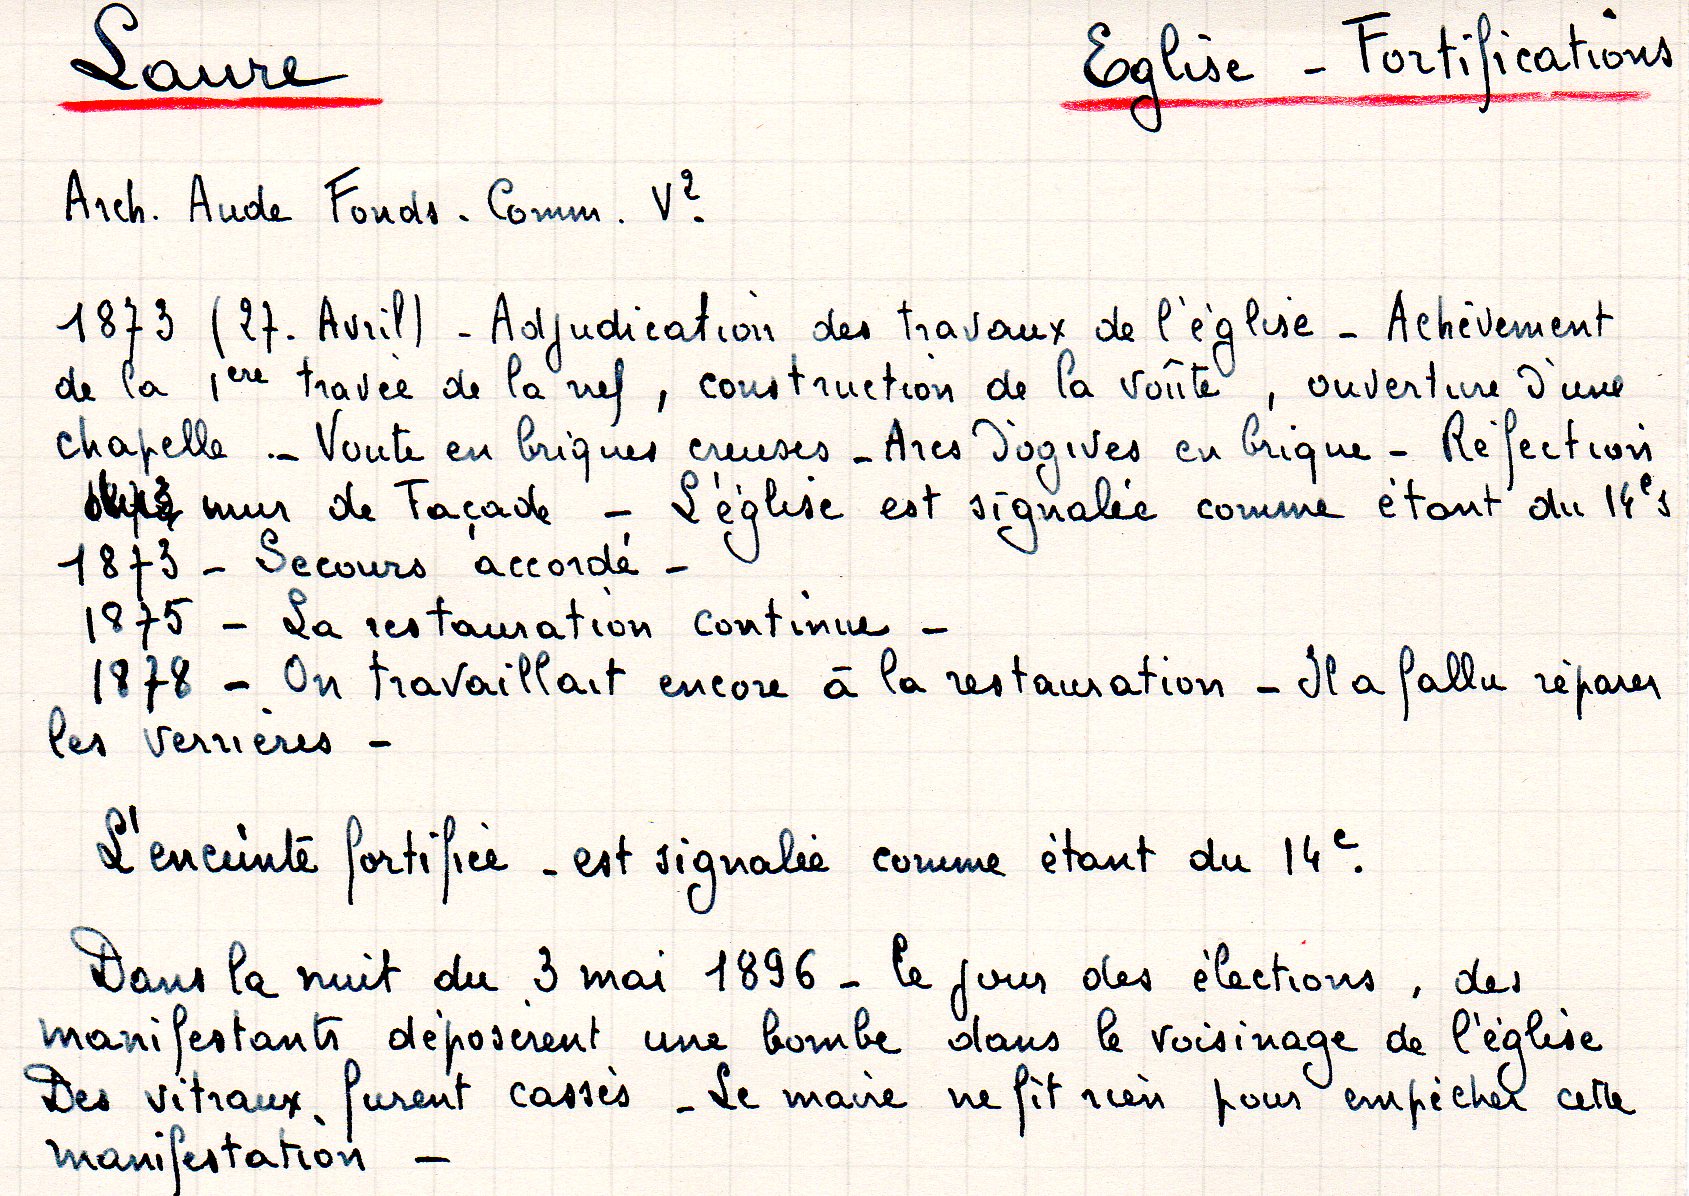 Laure Eglise - Fortifications
Arch. Aude Fonds. Comm. V².
1873 (27. Avril) - Adjudication des travaux de l'église - Achèvement
de la 1ère travée de la nef, construction de la voûte, ouverture d'une
chapelle - Voute en briques creuses - Arcs d'ogives en brique - Réfection
mur de façade - L'église est signalée comme étant du 14e s
1873 - Secours accordé -
1875 - La restauration continue -
1878 - On travaillait encore à la restauration - Il a fallu réparer
les verrières -
L'enceinte fortifiée - est signalée comme étant du 14e.
Dans la nuit du 3 mai 1896 - le jour des élections, des
manifestants déposèrent une bombe dans le voisinage de l'église
Des vitraux furent cassés - Le maire ne fit rien pour empêcher cette
manifestation -